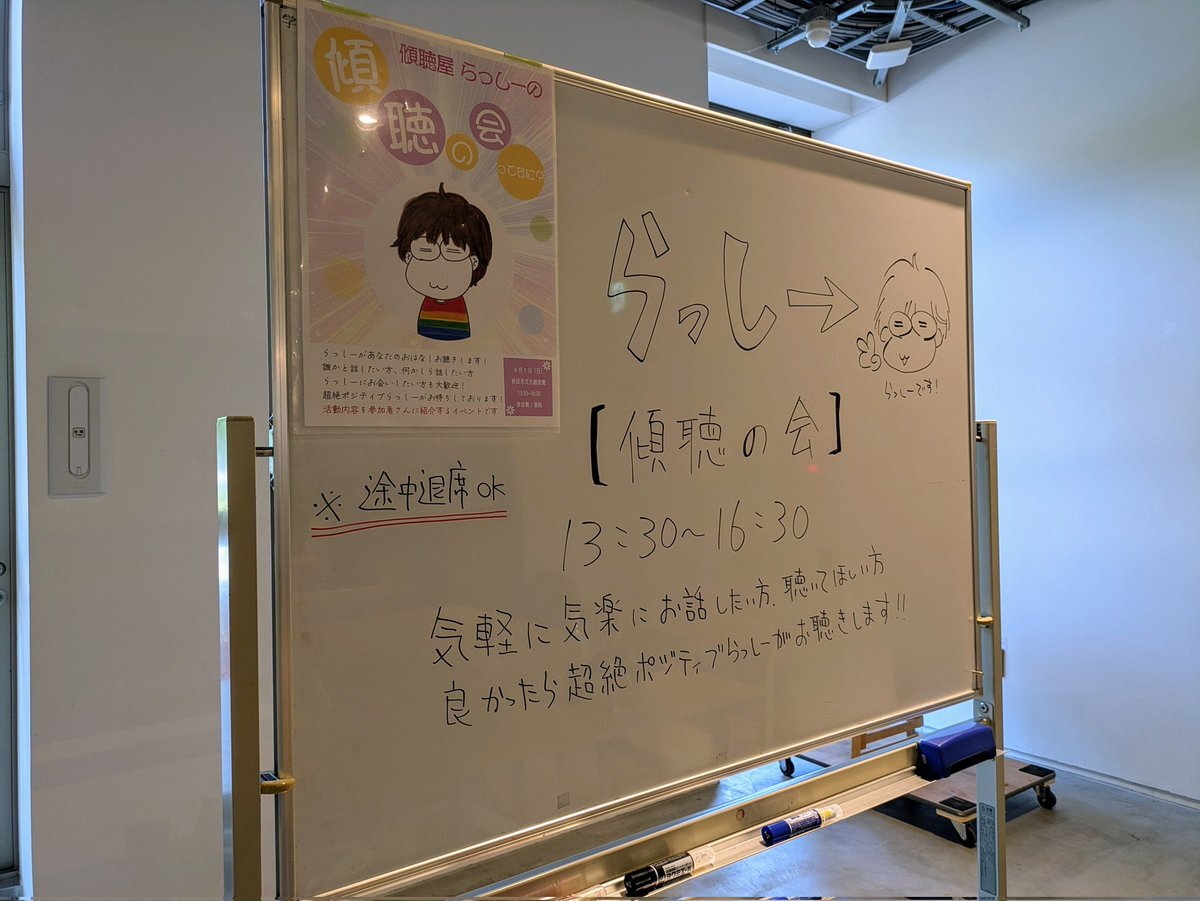 学
傾聴屋 らっしーの
傾聴の会
ってなに?
らっしーがあなたのおはなしお聴きします!
誰かと話したい方、何かしら話したい方
らっしーにお会いしたい方も大歓迎!
超絶ポジティブらっしーがお待ちしております!
活動内容を参加者さんに紹介するイベントです
6月1日(日)
秋田市文化創造館
13:30-16:30
参加費/無料
らっし→
らっしーです!
【傾聴の会】
※ 途中退席OK
13:30~16:30
気軽に気楽にお話したい方、聴いてほしい方
良かったら超絶ポジティブらっしーがお聴きします!!